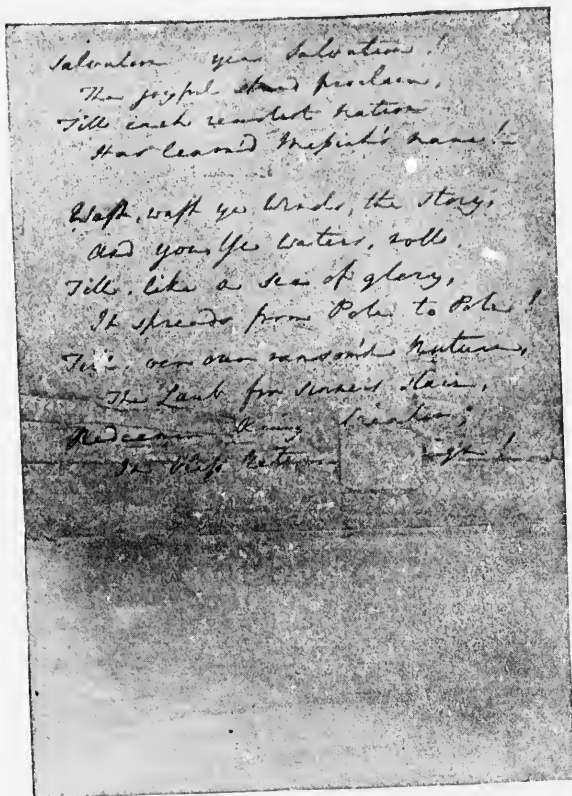 Salvation yea Salvation!
The joyful sound proclaim,
Till each remotest nation
Has learned Messiah's name!
Waft, waft ye Winds, the Story,
And you Ye Waters, roll,
Till, like a sea of glory,
It spreads from Pole to Pole!
Till, o'er our ransom'd Nature,
The Lamb for sinners slain,
Redeemer King Creator;
In bliss return